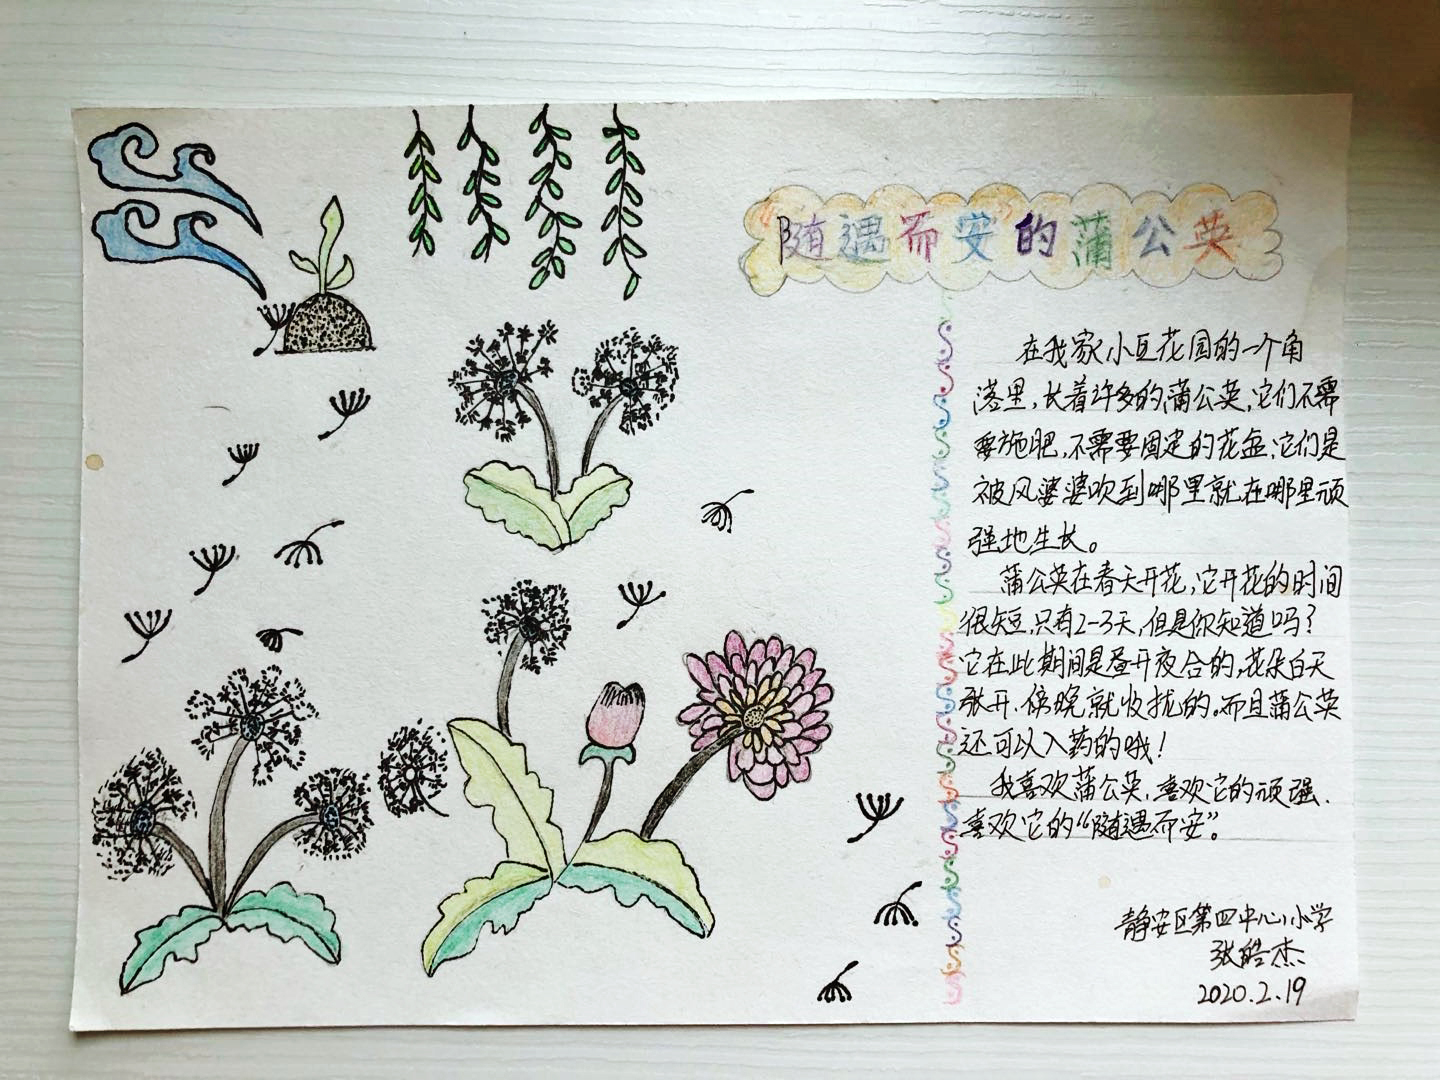 随遇而安的蒲公英
在我家小豆花园的一个角
落里，长着许多的蒲公英，它们不需
要施肥，不需要固定的花盆，它们是
被风婆婆吹到哪里就在哪里顽
强地生长。
蒲公英在春天开花，它开花的时间
很短，只有2-3天，但是你知道吗？
它在此期间是昼开夜合的，花朵白天
张开，傍晚就收拢的。而且蒲公英
还可以入药的哦！
我喜欢蒲公英，喜欢它的顽强，
喜欢它的“随遇而安”。
静安区第四中心小学
张皓杰
2020.2.19